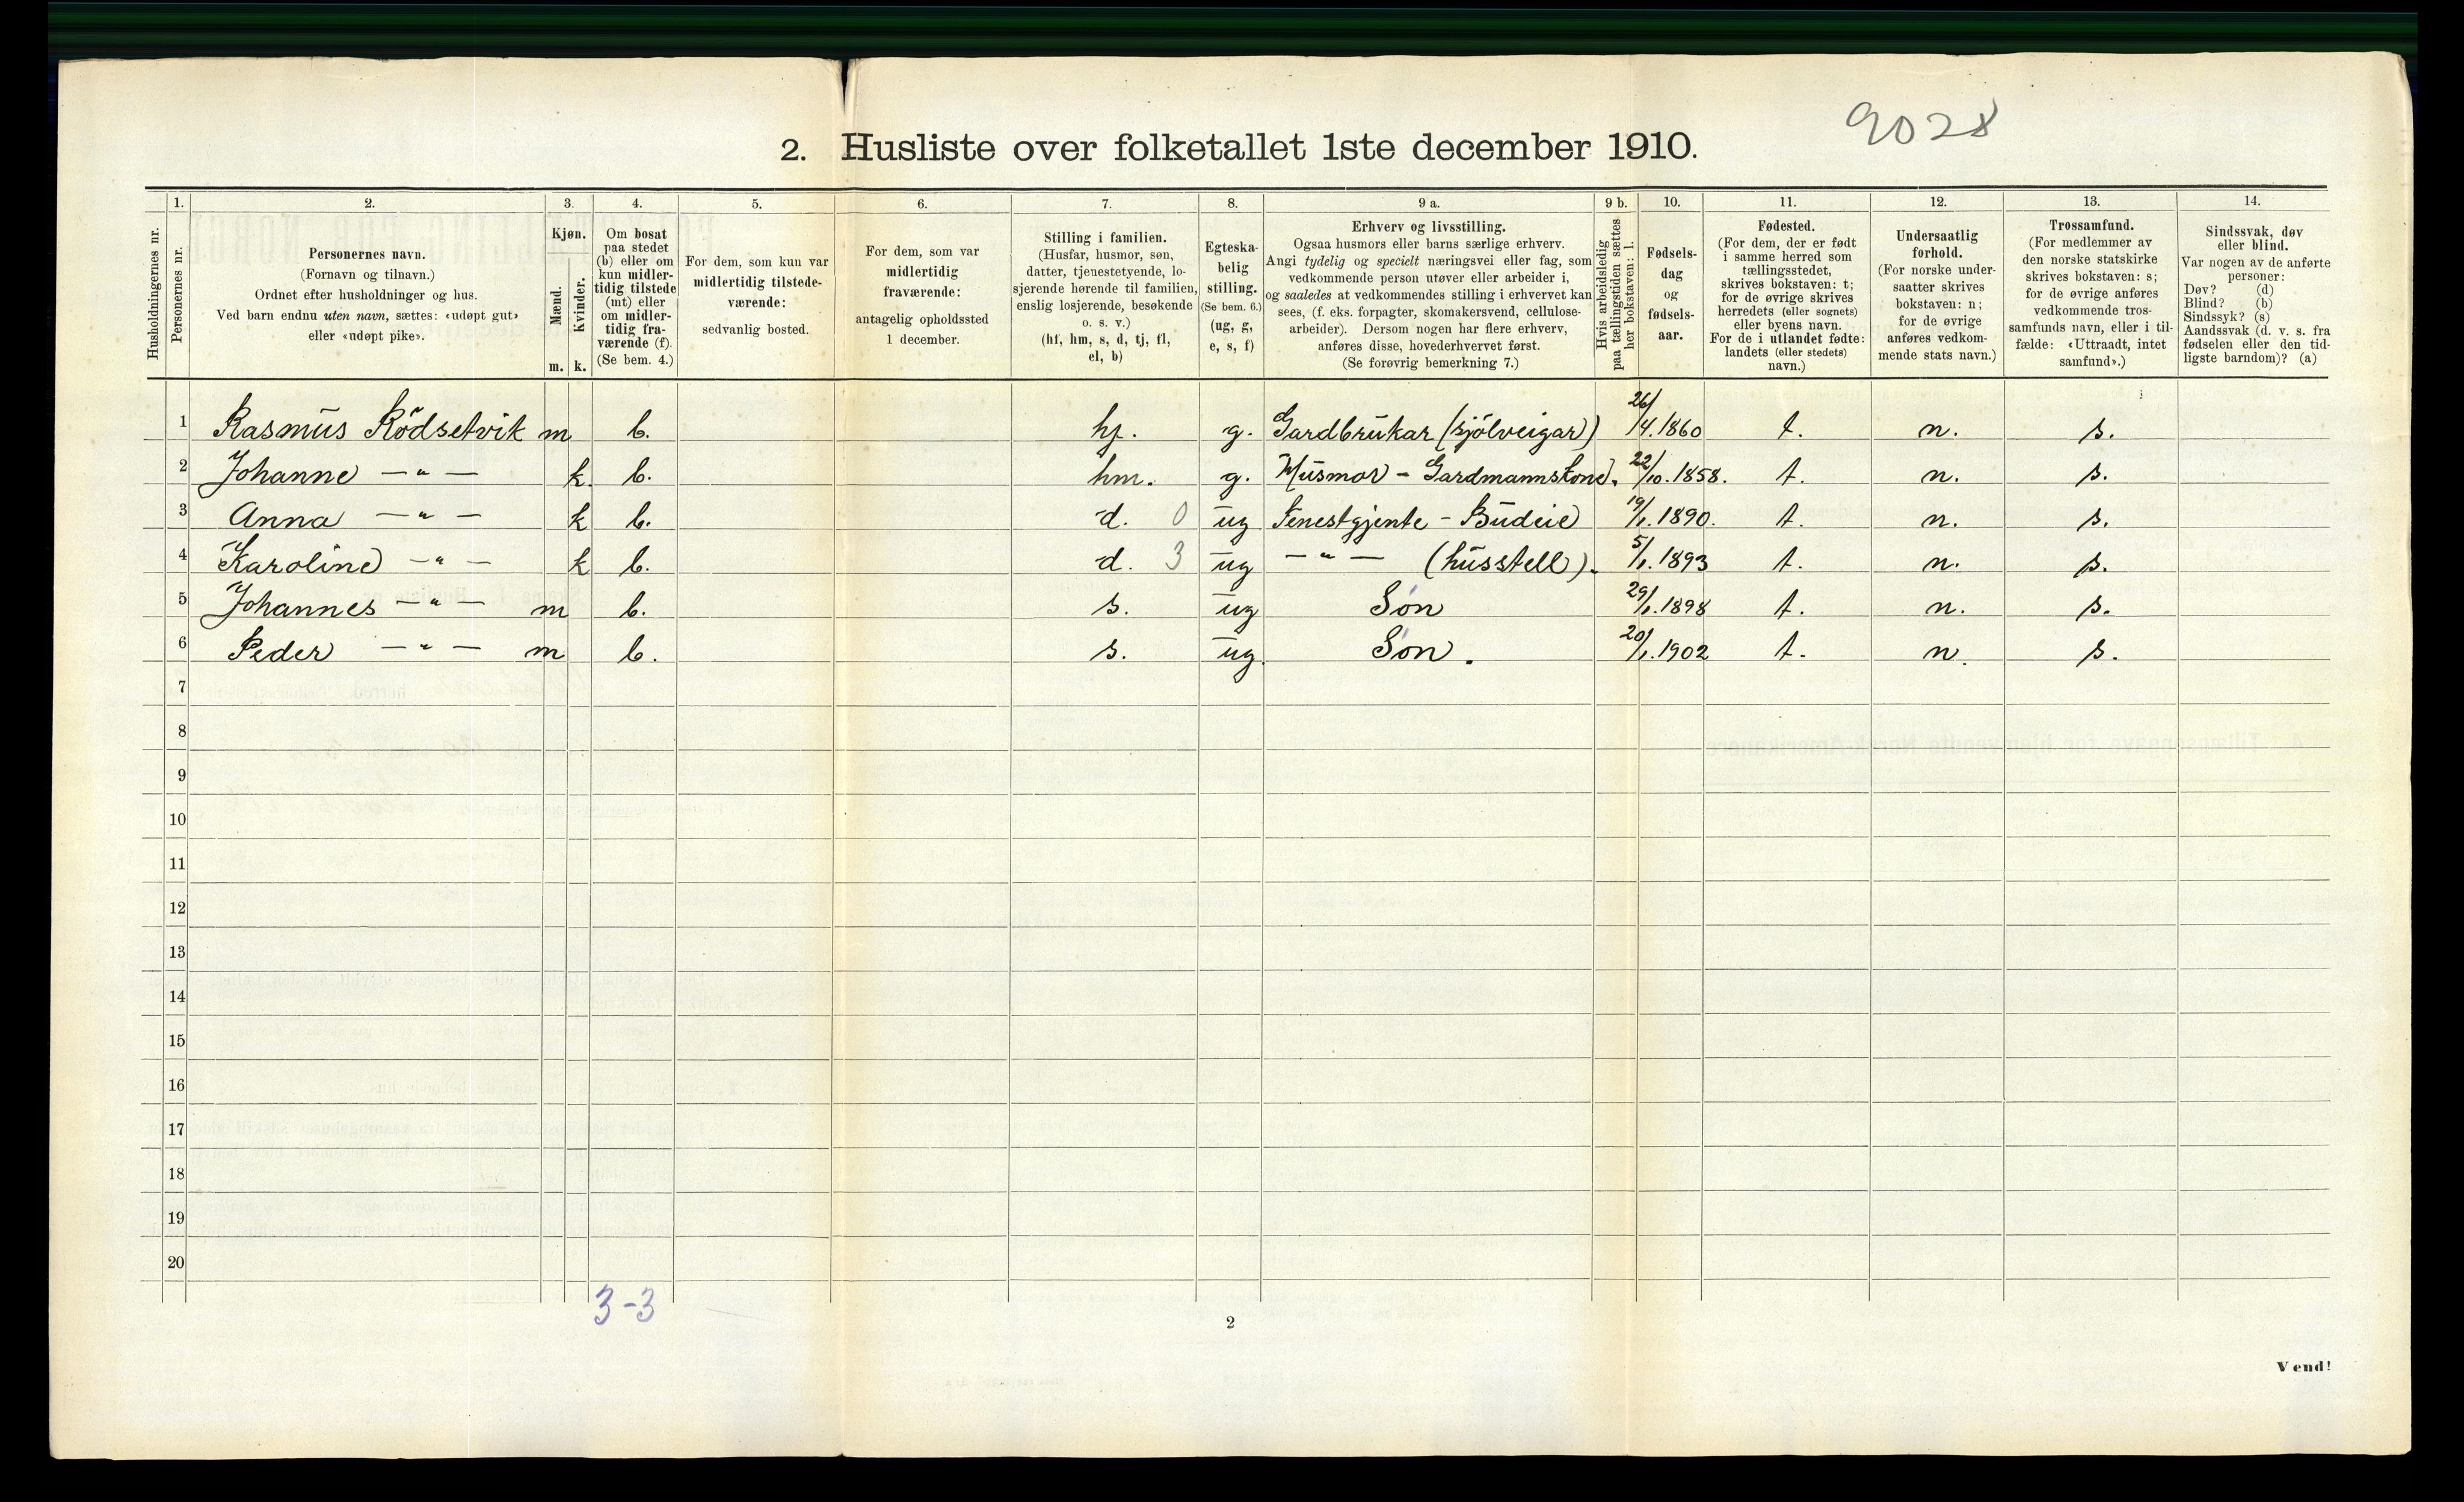 9028
2. Husliste over folketallet 1ste december 1910.
Husholdningernes nr.
1. Personernes nr.
2. Personernes navn. (Fornavn og tilnavn.) Ordnet efter husholdninger og hus. Ved barn endnu uten navn, sættes: «udøpt gut» eller «udøpt pike».
3. Kjøn. Mænd. m. Kvinder. k.
4. Om bosat paa stedet (b) eller om kun midlertidig tilstede (mt) eller om midlertidig fraværende (f). (Se bem. 4.)
5. For dem, som kun var midlertidig tilstedeværende: sedvanlig bosted.
6. For dem, som var midlertidig fraværende: antagelig opholdssted 1 december.
7. Stilling i familien. (Husfar, husmor, søn, datter, tjenestetyende, losjerende hørende til familien, enslig losjerende, besøkende o. s. v.) (hf, hm, s, d, tj, fl, el, b)
8. Egteskabelig stilling. (Se bem. 6.) (ug, g, e, s, f)
9 a. Erhverv og livsstilling. Ogsaa husmors eller barns særlige erhverv. Angi tydelig og specielt næringsvei eller fag, som vedkommende person utøver eller arbeider i, og saaledes at vedkommendes stilling i erhvervet kan sees, (f. eks. forpagter, skomakersvend, cellulosearbeider). Dersom nogen har flere erhverv, anføres disse, hovederhvervet først. (Se forøvrig bemerkning 7.)
9 b. Hvis arbeidsledig paa tællingstiden sættes her bokstaven: l.
10. Fødselsdag og fødselsaar.
11. Fødested. (For dem, der er født i samme herred som tællingsstedet, skrives bokstaven: t; for de øvrige skrives herredets (eller sognets) eller byens navn. For de i utlandet fødte: landets (eller stedets) navn.)
12. Undersaatlig forhold. (For norske undersaatter skrives bokstaven: n; for de øvrige anføres vedkommende stats navn.)
13. Trossamfund. (For medlemmer av den norske statskirke skrives bokstaven: s; for de øvrige anføres vedkommende trossamfunds navn, eller i tilfælde: «Uttraadt, intet samfund».)
14. Sindssvak, døv eller blind. Var nogen av de anførte personer: Døv? (d) Blind? (b) Sindssyk? (s) Aandssvak (d. v. s. fra fødselen eller den tidligste barndom)? (a)
1 Rasmus Rödsetvik m b. hf. g. Gardbrukar (sjölveigar) 26/4.1860 t. n. s.
2 Johanne —"— k. b. hm. g. Husmor - Gardmannskone. 22/10.1858. t. n. s.
3 Anna —"— k b. d. 0 ug Tenestgjente - Budeie 19/1.1890. t. n. s.
4 Karoline —"— k b. d. 3 ug —"— (husstell). 5/1.1893 t. n. s.
5 Johannes —"— m b. s. ug Søn 29/1.1898 t. n. s.
6 Peder —"— m b. s. ug. Søn. 20/1.1902 t. n. s.
7
8
9
10
11
12
13
14
15
16
17
18
19
20
3-3
2
Vend!